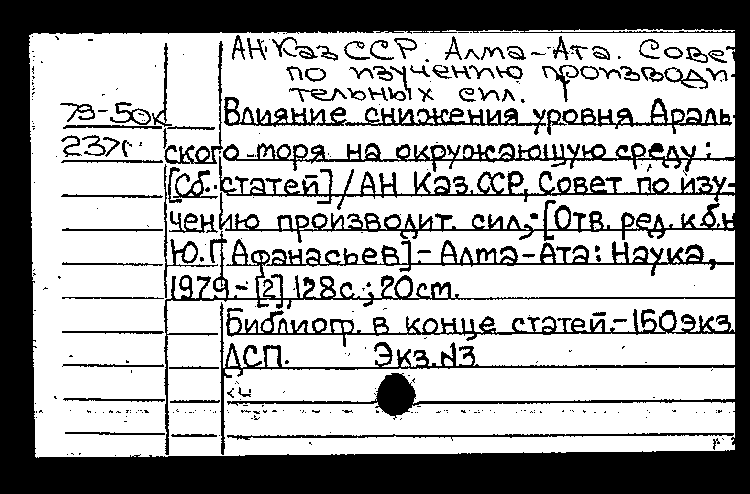 АН КазССР. Алма-Ата. Совет
по изучению производи-
тельных сил.
79-50к Влияние снижения уровня Араль-
237г ского моря на окружающую среду:
[Сб. статей] / АН Каз.ССР, Совет по изу-
чению производит. сил;-[Отв. ред. к.б.н
Ю.Г Афанасьев].- Алма-Ата: Наука,
1979.- [2], 128с.; 20cm.
Библиогр. в конце статей.-150экз
ДСП. Экз.N3